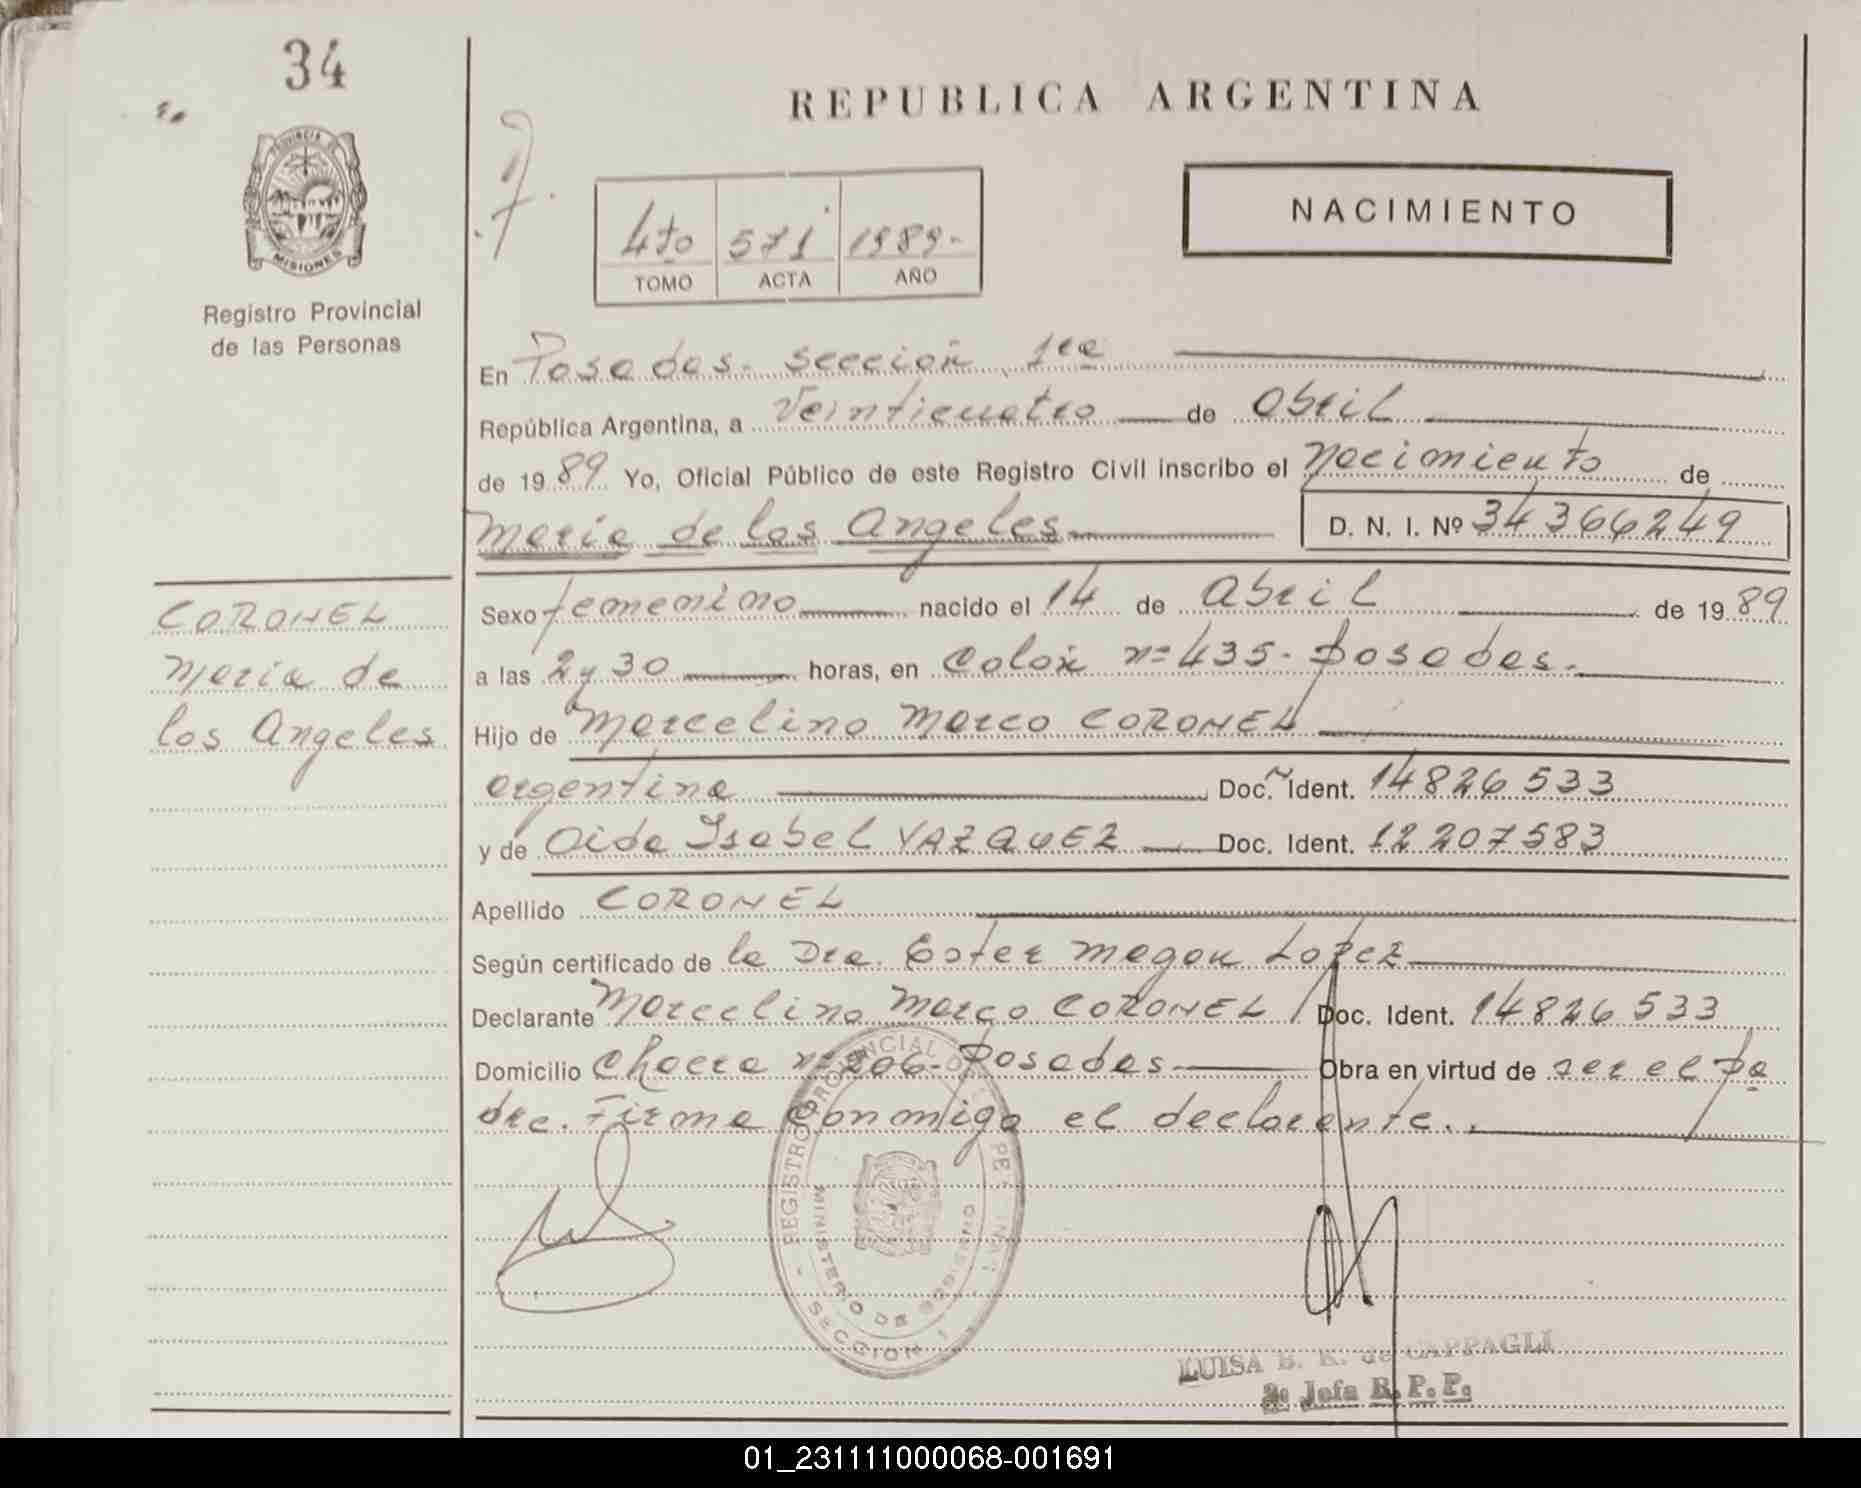 34
REPUBLICA ARGENTINA
PROVINCIA DE
MISIONES
Registro Provincial
de las Personas
4to 571 1989-
TOMO ACTA AÑO
NACIMIENTO
En Posadas. Sección 1ra
República Argentina, a Veinticuatro de Abril
de 19 89 Yo, Oficial Público de este Registro Civil inscribo el Nacimiento de
Maria de los Angeles D. N. I. Nº 34366249
CORONEL
Maria de
los Angeles
Sexo femenino nacido el 14 de Abril de 19 89
a las 2 y 30 horas, en Colón nº 435- posadas.
Hijo de Marcelino Marco CORONEL
argentina Doc. Ident. 14826533
y de Aida Isabel VAZQUEZ Doc. Ident. 12207583
Apellido CORONEL
Según certificado de la Dra. Ester Lopez
Declarante Marcelino Marco CORONEL Doc. Ident. 14826533
Domicilio Chacra nº 206- posadas Obra en virtud de ser el pa
dre. Firma conmigo el declarante..
REGISTRO PROVINCIAL DE
MINISTERIO DE GOBIERNO
SECCION 1
LUISA B. K. de CAPPAGLI
2ª Jefa R. P. P.
01_231111000068-001691